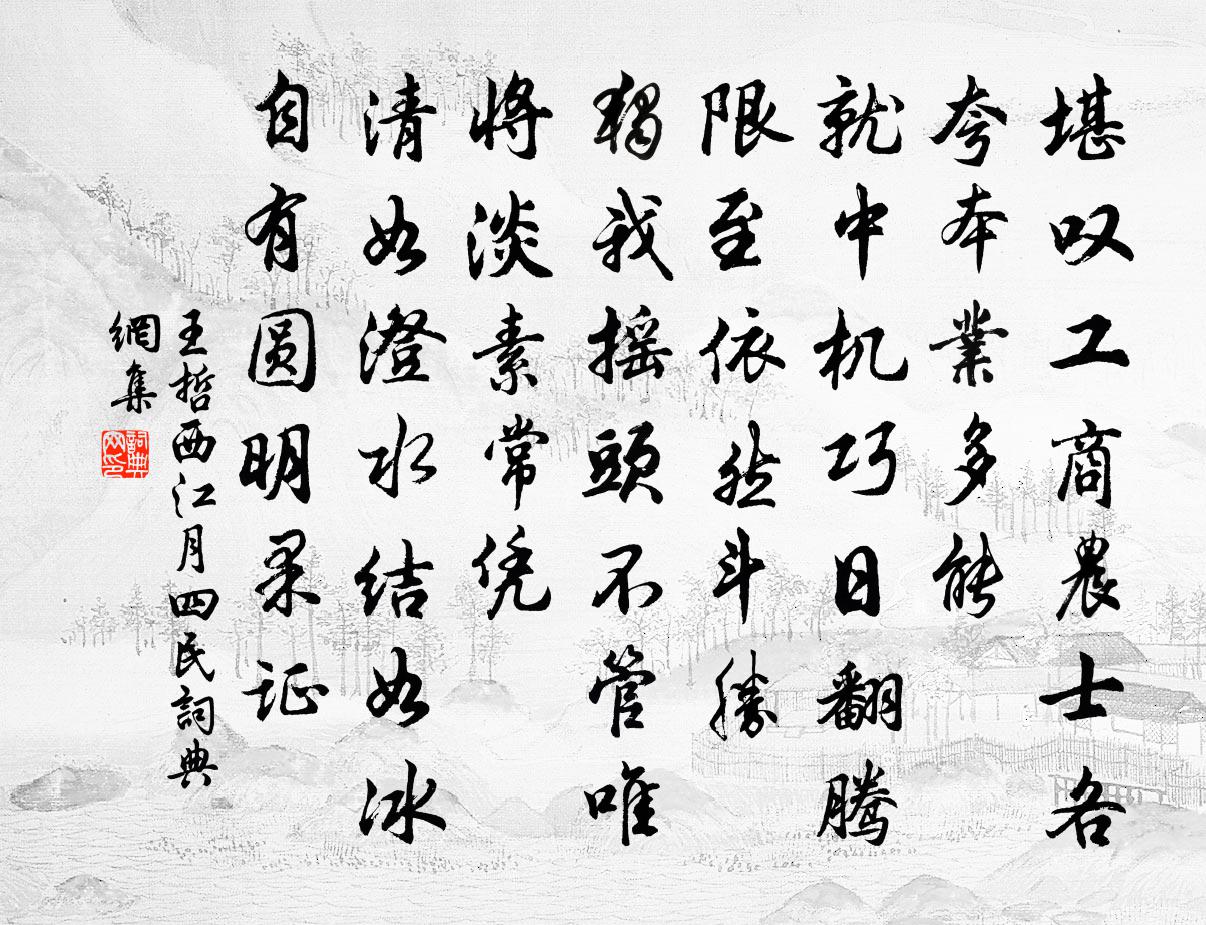 堪叹工商農士各
夸本業多能
就中机巧日翻腾
限至依然斗勝
独我摇頭不管唯
将淡素常凭
清如澄水结如冰
自有圆明果证
王哲西江月四民詞典
網集
詞典
网印